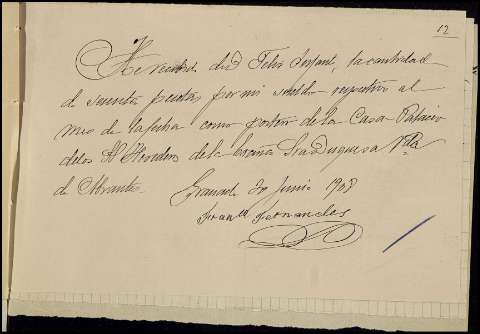 12
He recibido de D Felix Infant, la cantidad
de sesenta pesetas por mi sueldo respectivo al
mes de la fecha como portero de la Casa Palacio
de los H Herederos de la Excma Sra Duquesa Vda
de Abrantes.
Granada 30 Junio 1908
Franco Fernandes